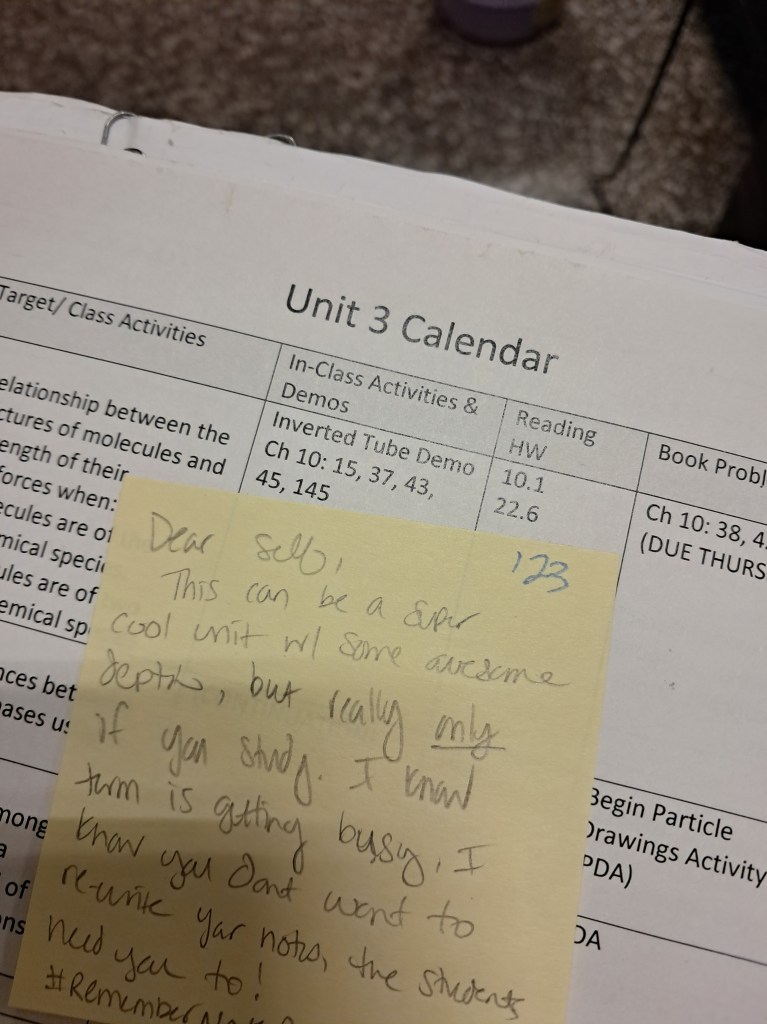 Unit 3 Calendar
Target/ Class Activities
In-Class Activities &
Demos
Reading
HW
Book
elationship between the
ctures of molecules and
ength of their
forces when:
ecules are of
mical speci
ules are of
emical sp
Inverted Tube Demo
Ch 10: 15, 37, 43,
45, 145
10.1
22.6
Ch 10: 38, 4
(DUE THURS
nces bet
ases us
mong
a
of
ons
Begin Particle
Drawings Activity
PDA)
DA
123
Dear Self,
This can be a super
cool unit w/ some awesome
depth, but really only
if you study. I know
term is getting busy, I
know you dont want to
re-write your notes, the students
need you to!